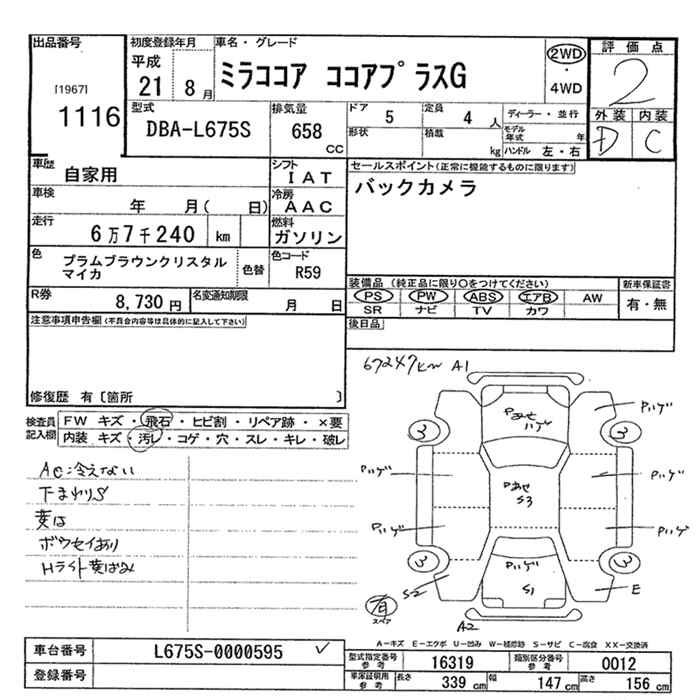 出品番号
[1967]
1116
初度登録年月
平成
21 8月
車名・グレード
ミラココア ココアプラスG
2WD
・
4WD
評価点
2
外装 内装
D C
型式
DBA-L675S
排気量
658
CC
ドア 5
定員 4 人
形状
積載 kg
ディーラー・並行
モデル年式 年
ハンドル 左・右
車歴 自家用
シフト IAT
車検 年 月( 日)
冷房 AAC
走行 6万7千240 km
燃料 ガソリン
色 プラムブラウンクリスタル
マイカ
色替
色コード R59
R券 8,730円
名変通知期限 月 日
セールスポイント(正常に機能するものに限ります)
バックカメラ
装備品 (純正品に限り○をつけてください)
PS PW ABS エアB AW
SR ナビ TV カワ
新車保証書
有・無
後日品
注意事項申告欄(不具合内容等は具体的に記入して下さい)
修復歴 有〔箇所 〕
67247km A1
検査員
記入欄
FW キズ・飛石・ヒビ割・リペア跡・×要
内装 キズ・汚レ・コゲ・穴・スレ・キレ・破レ
AC冷えない
下まわりS
黄は
ボウセイあり
Hライト黄ばみ
Pあせ
ハゲ
Pハゲ
3
3
Pハゲ
Pハゲ
Pあせ
S3
Pハゲ
Pハゲ
3
3
Pハゲ
S2
S1
E
有
スペア
A2
A-キズ E-エクボ U-凹み W-補修跡 S-サビ C-腐食 XX-交換済
車台番号 L675S-0000595 ✓
登録番号
型式指定番号
参考
16319
類別区分番号
参考
0012
車家証明用
参考
長さ 339cm 幅 147cm 高さ 156cm